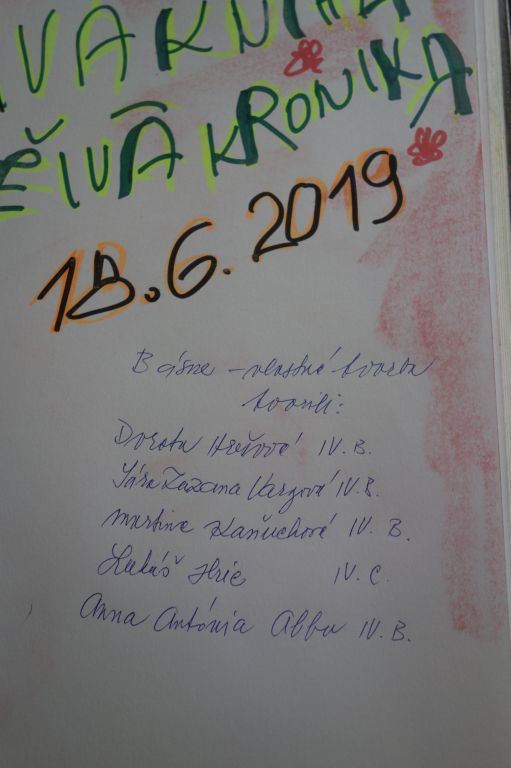 IVÁ KNIHA
ŽIVÁ KRONIKA
18.6.2019
Básne - vlastná tvorba
tvorili:
Dorota Hrešová IV. B.
Sára Zuzana Vargová IV. B.
Martina Kaňuchová IV. B.
Lukáš Hric IV. C.
Anna Antónia Abba IV. B.